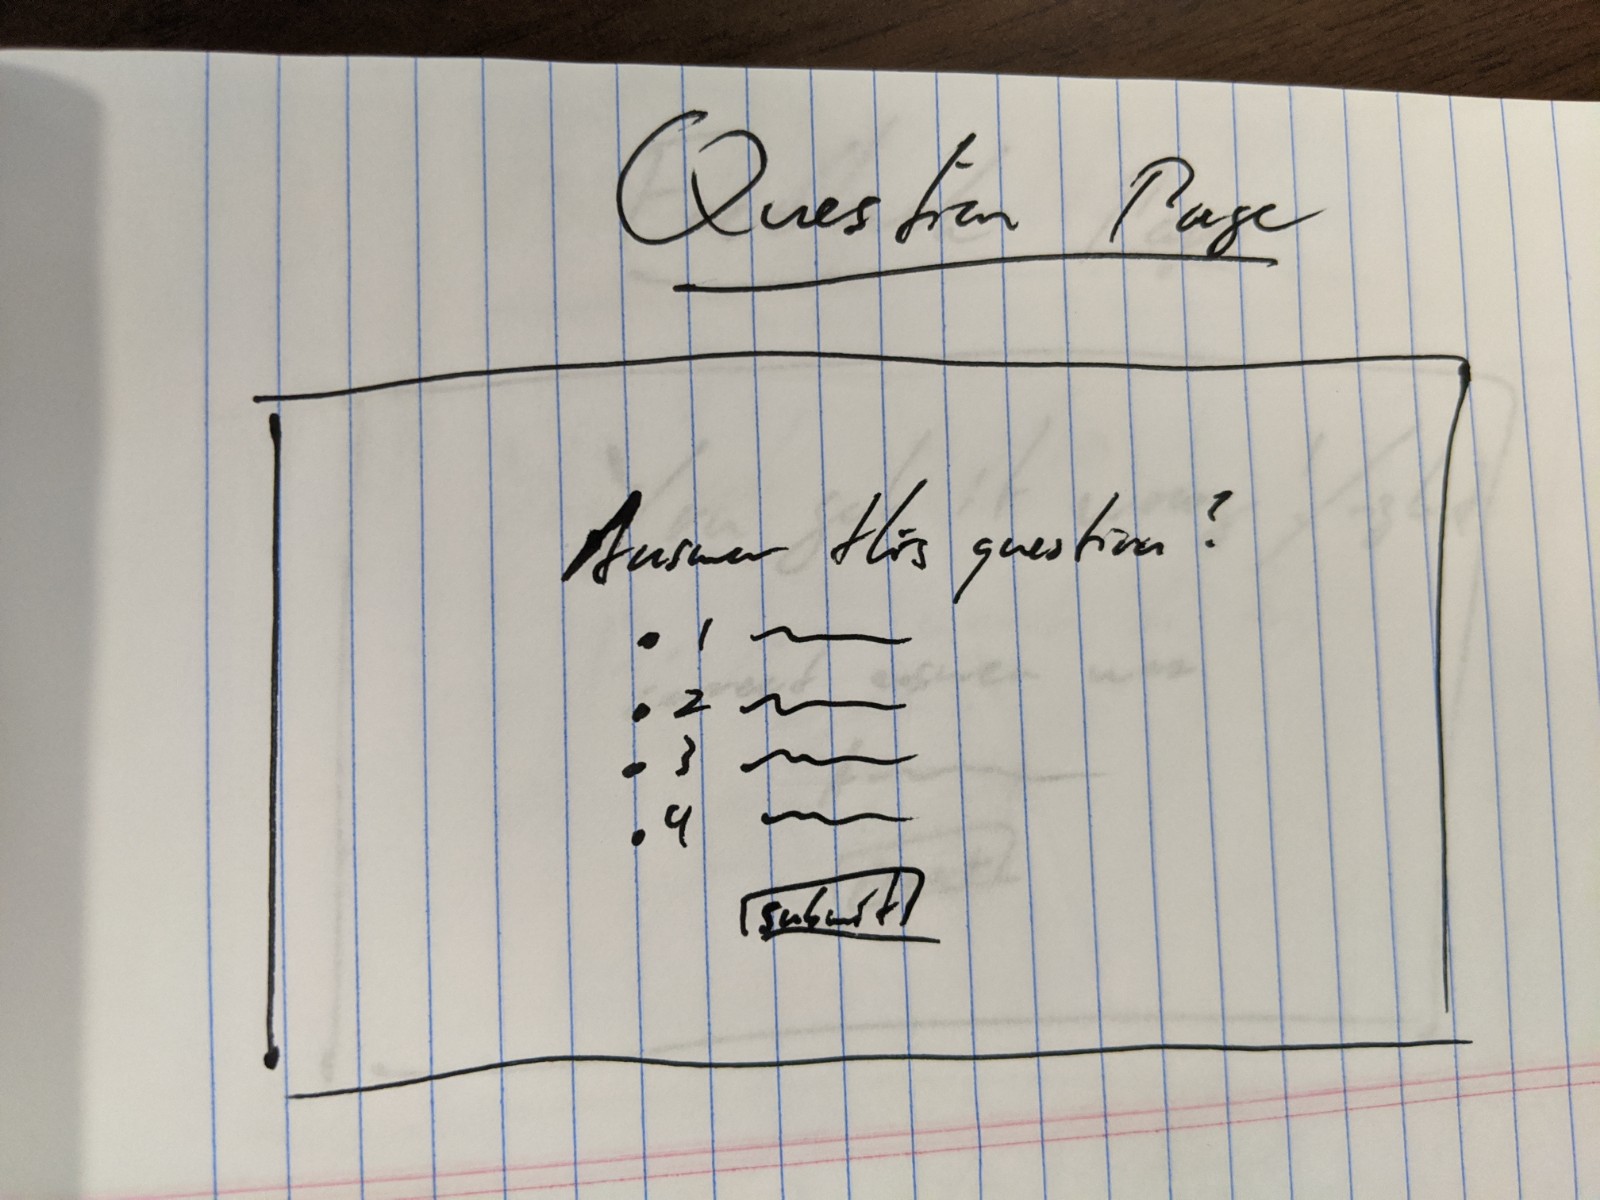 Question Page
Answer this question?
• 1
• 2
• 3
• 4
submit